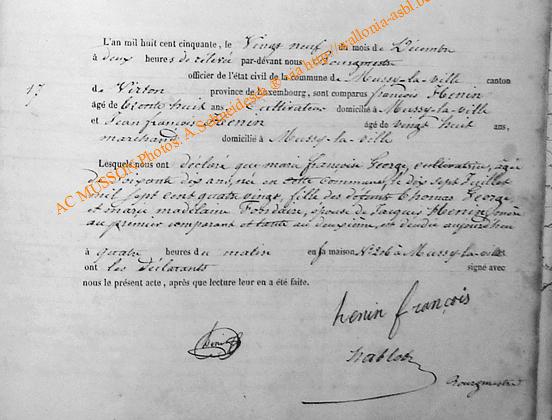 L'an mil huit cent cinquante, le Vingt neuf du mois de Décembre
à deux heures de rélevée par-devant nous Bourgmestre
officier de l'état civil de la commune de Mussy-la-ville canton
17.
de Virton province de Luxembourg, sont comparus françois Henin
âgé de trente huit ans Cultivateur domicilié à Mussy-la-ville
et Jean françois Henin âgé de vingt huit ans,
marchand domicilié à Mussy-la-ville
Lesquels nous ont déclaré que marie françoise George, cultivatrice, âgée
de soixante dix ans, née en cette Commune, le dix Sept Juillet
mil Sept cent quatre vingt, fille des défunts Thomas George
et marie madelaine épouse de Jacques Henin, mère
au premier comparant et tante au deuxième, est décédée aujourd'hui
à quatre heures du matin en sa maison N° 206 à Mussy-la-ville
ont les déclarants signé avec
nous le présent acte, après que lecture leur en a été faite.
henin françois
Henin
Bourgmestre
AC MUSSON Photos. A.Schneidesch @ via http://wallonia-asbl.be